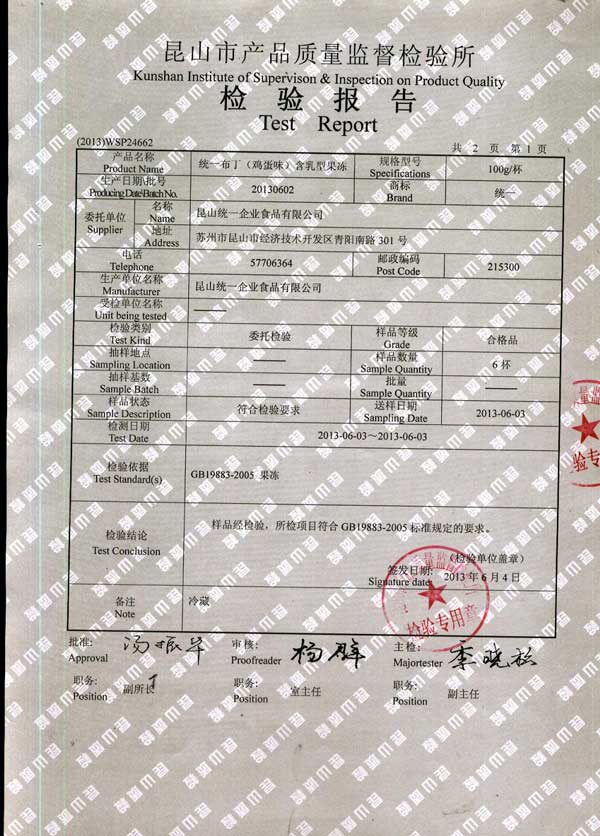 昆山市产品质量监督检验所
Kunshan Institute of Supervison & Inspection on Product Quality
检验报告
Test Report
(2013)WSP24662
共 2 页 第 1 页
产品名称 统一布丁（鸡蛋味）含乳型果冻 规格型号 100g/杯
Product Name Specifications
生产日期\批号 20130602 商标 统一
Producing Date\Batch No. Brand
委托单位 名称 昆山统一企业食品有限公司
Supplier Name
地址 苏州市昆山市经济技术开发区青阳南路 301 号
Address
电话 57706364 邮政编码 215300
Telephone Post Code
生产单位名称 昆山统一企业食品有限公司
Manufacturer
受检单位名称 ——
Unit being tested
检验类别 委托检验 样品等级 合格品
Test Kind Grade
抽样地点 —— 样品数量 6 杯
Sampling Location Sample Quantity
抽样基数 —— 批量 ——
Sample Batch Sample Quantity
样品状态 符合检验要求 送样日期 2013-06-03
Sample Description Sampling Date
检测日期 2013-06-03～2013-06-03
Test Date
检验依据 GB19883-2005 果冻
Test Standard(s)
样品经检验，所检项目符合 GB19883-2005 标准规定的要求。
检验结论
Test Conclusion
（检验单位盖章）
签发日期: 2013 年 6 月 4 日
Signature date:
检验专用章
备注 冷藏
Note
批准: 汤振华 审核: 杨 主检: 李晓
Approval Proofreader Majortester
职务: 副所长 职务: 室主任 职务: 副主任
Position Position Position